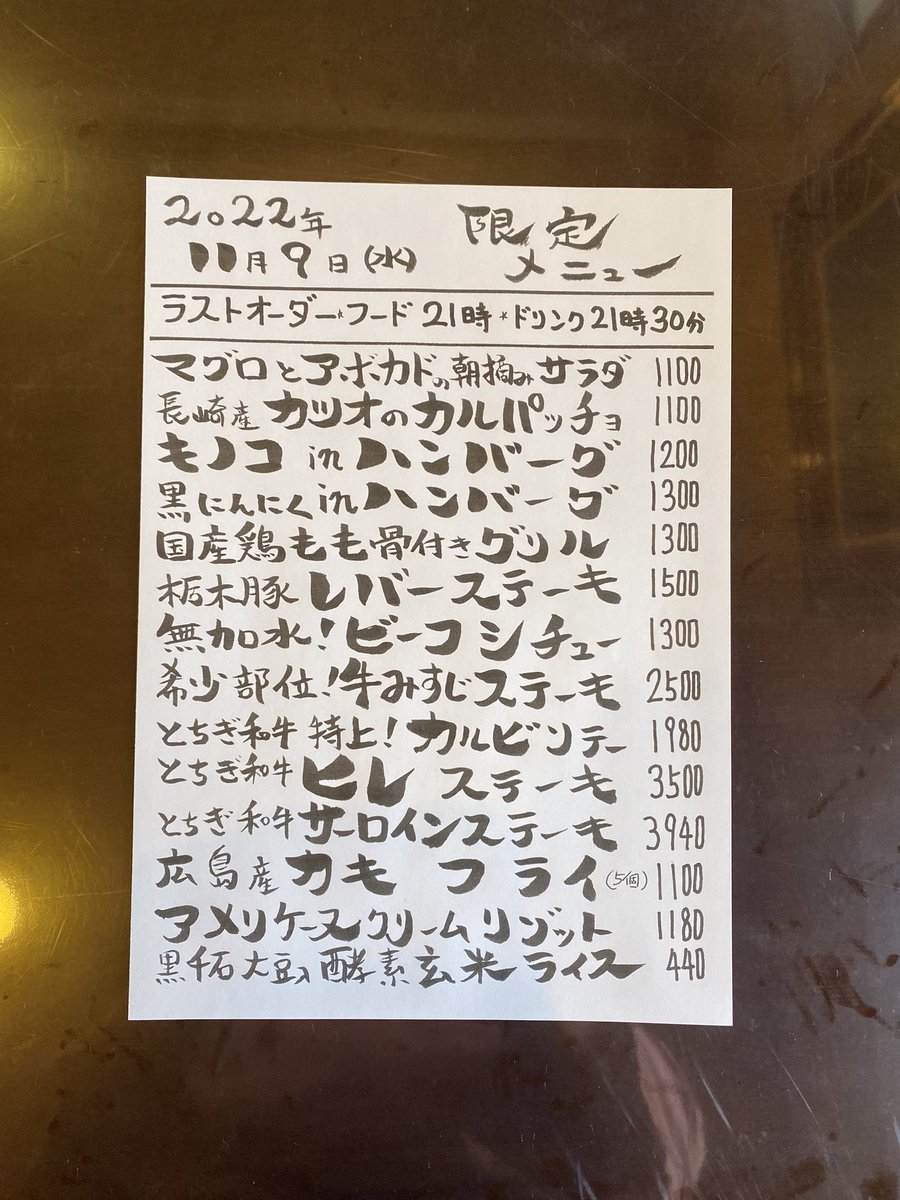 2022年 限定
11月9日(水) メニュー
ラストオーダー*フード 21時*ドリンク21時30分
マグロとアボカドの朝摘みサラダ 1100
長崎産 カツオのカルパッチョ 1100
キノコinハンバーグ 1200
黒にんにくinハンバーグ 1300
国産鶏もも骨付きグリル 1300
栃木豚 レバーステーキ 1500
無加水!ビーフシチュー 1300
希少部位!牛みすじステーキ 2500
とちぎ和牛 特上!カルビソテー 1980
とちぎ和牛 ヒレステーキ 3500
とちぎ和牛 サーロインステーキ 3940
広島産 カキフライ(5個) 1100
アメリケーヌクリームリゾット 1180
黒千石大豆の酵素玄米ライス 440